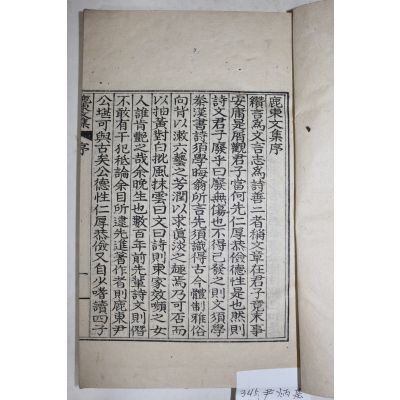 鹿東文集序
纘言爲文言志爲詩善二者稱文章在君子竟末事
安庸是屑觀君子當何先仁厚恭儉德性是也然則
詩文君子廢乎曰廢無傷也不得已發之則文須學
秦漢書詩須學晦翁所言先須識得古今體制雅俗
向背以漱六藝之芳潤以求眞淡之趣焉乃可否而
以抽黃對白批風抹雲曰文曰詩則東家效嚬之女
人誰肯艶之哉余晩生也數百年前先輩詩文則僭
不敢有干犯秪論余目所逮先進著作者則鹿東尹
公堪可與古矣公德性仁厚恭儉又自少嗜讀四子
鹿東文集 序 一
345 尹炳